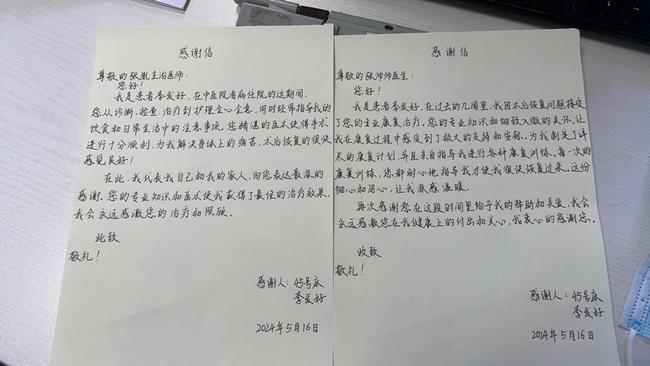 感谢信
尊敬的张胤主治医师：
您好！
我是患者李发好，在中医院看病住院的这期间，
您从诊断、检查、治疗到护理全心全意，同时经常指导我的
饮食和日常生活中的注意事项。您精湛的医术使得手术
进行十分顺利，为我解决身体上的病苦，术后恢复的很快
感觉良好！
在此，我代表我自己和我的家人，向您表达最深的
感谢。您的专业知识和医术使我获得了最佳的治疗效果。
我会永远感激您的治疗和照顾。
此致
敬礼！
感谢人：45号床
李发好
2024年5月16日
感谢信
尊敬的张帅帅医生：
您好！
我是患者李发好，在过去的几周里，我因术后恢复问题接受
了您的专业康复治疗。您的专业知识和细致入微的关怀，让
我在康复过程中感受到了极大的支持和安慰。为我制定了详
尽的康复计划，并且亲自指导我进行各种康复训练。每一次的
康复训练，您都耐心地指导我才使我很快恢复过来。这份
细心和用心，让我倍感温暖。
再次感谢您在这段时间里给予我的帮助和关爱，我会
永远感激您在我健康上的付出和关心，我衷心的感谢您。
此致
敬礼！
感谢人：45号床
李发好
2024年5月16日